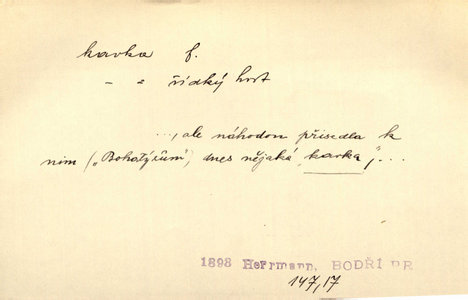 kavka f.
– = řídký host
..., ale náhodou přisedla k
nim („Bohatýrům“) dnes nějaká „kavka“, ...
1898 Herrmann, BODŘÍ PR
147,17